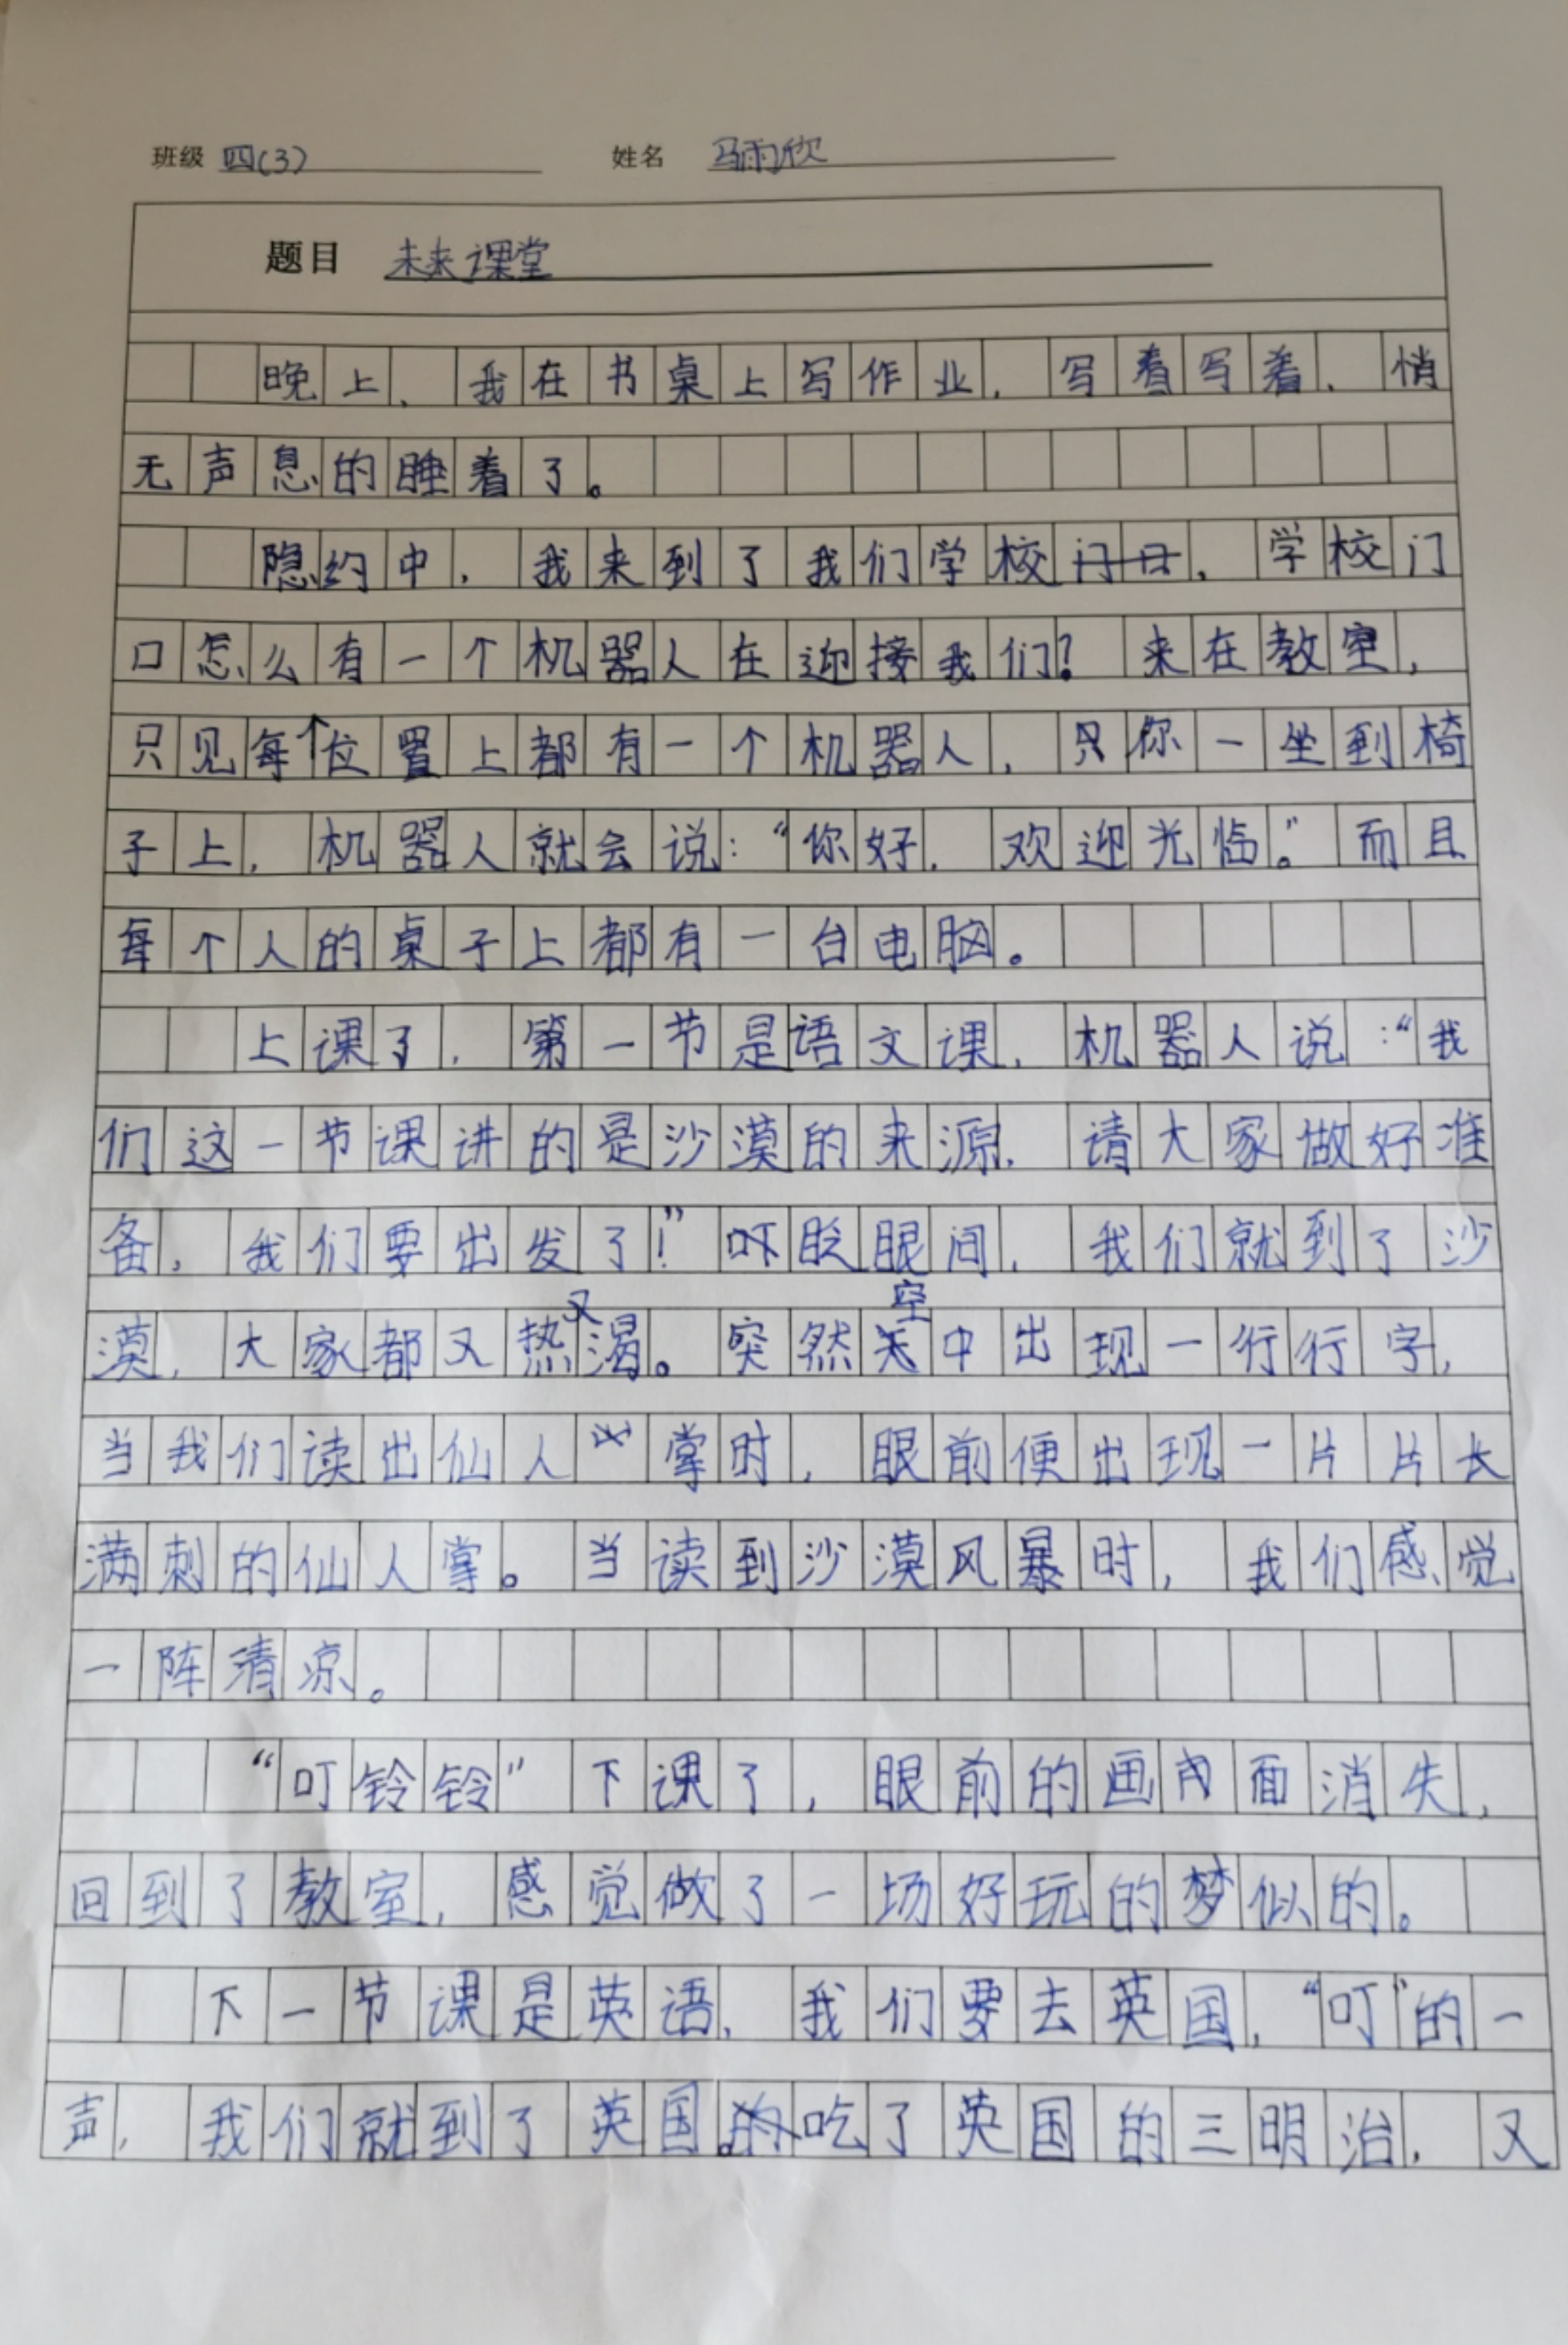 班级 四(3) 姓名 马雨欣
题目 未来课堂
晚上，我在书桌上写作业，写着写着，悄
无声息的睡着了。
隐约中，我来到了我们学校，学校门
口怎么有一个机器人在迎接我们？来在教室，
只见每个位置上都有一个机器人，只你一坐到椅
子上，机器人就会说：“你好，欢迎光临。”而且
每个人的桌子上都有一台电脑。
上课了，第一节是语文课，机器人说：“我
们这一节课讲的是沙漠的来源，请大家做好准
备，我们要出发了！”眨眼间，我们就到了沙
漠，大家都又热又渴。突然空中出现一行行字，
当我们读出仙人掌时，眼前便出现一片片长
满刺的仙人掌。当读到沙漠风暴时，我们感觉
一阵清凉。
“叮铃铃”下课了，眼前的画面消失，
回到了教室，感觉做了一场好玩的梦似的。
下一节课是英语，我们要去英国，“叮”的一
声，我们就到了英国。吃了英国的三明治，又